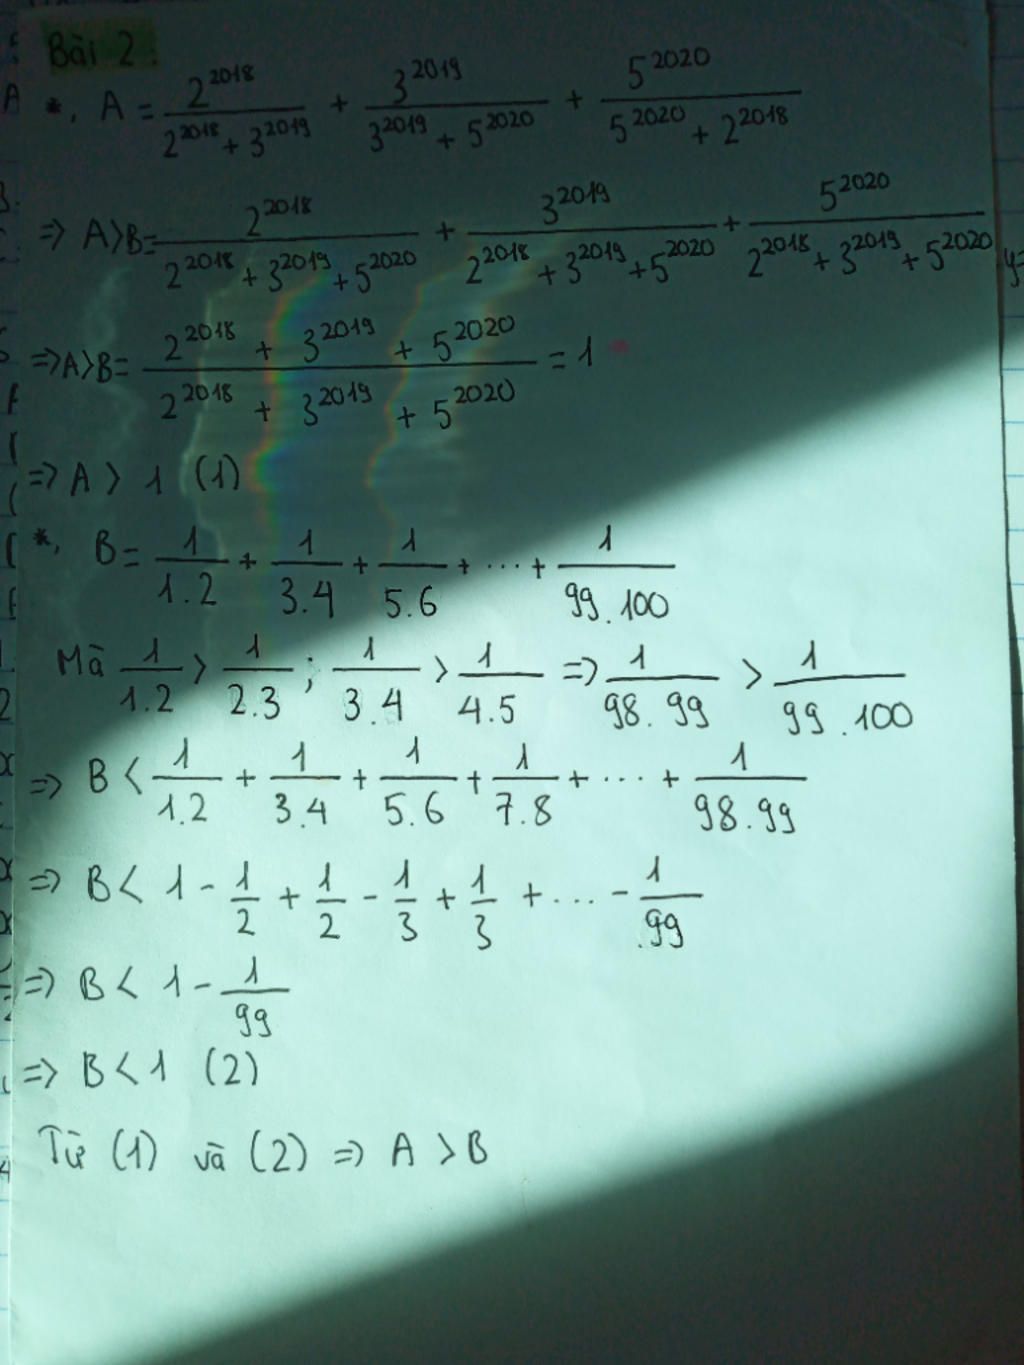 Bài 2:
*, A = 2^2018/(2^2018 + 3^2019) + 3^2019/(3^2019 + 5^2020) + 5^2020/(5^2020 + 2^2018)
=> A>B= 2^2018/(2^2018 + 3^2019 + 5^2020) + 3^2019/(2^2018 + 3^2019 + 5^2020) + 5^2020/(2^2018 + 3^2019 + 5^2020)
=> A>B= (2^2018 + 3^2019 + 5^2020)/(2^2018 + 3^2019 + 5^2020) = 1
=> A > 1 (1)
*, B= 1/1.2 + 1/3.4 + 1/5.6 + ... + 1/99.100
Mà 1/1.2 > 1/2.3 ; 1/3.4 > 1/4.5 => 1/98.99 > 1/99.100
=> B < 1/1.2 + 1/3.4 + 1/5.6 + 1/7.8 + ... + 1/98.99
=> B < 1 - 1/2 + 1/2 - 1/3 + 1/3 + ... - 1/99
=> B < 1 - 1/99
=> B < 1 (2)
Từ (1) và (2) => A > B